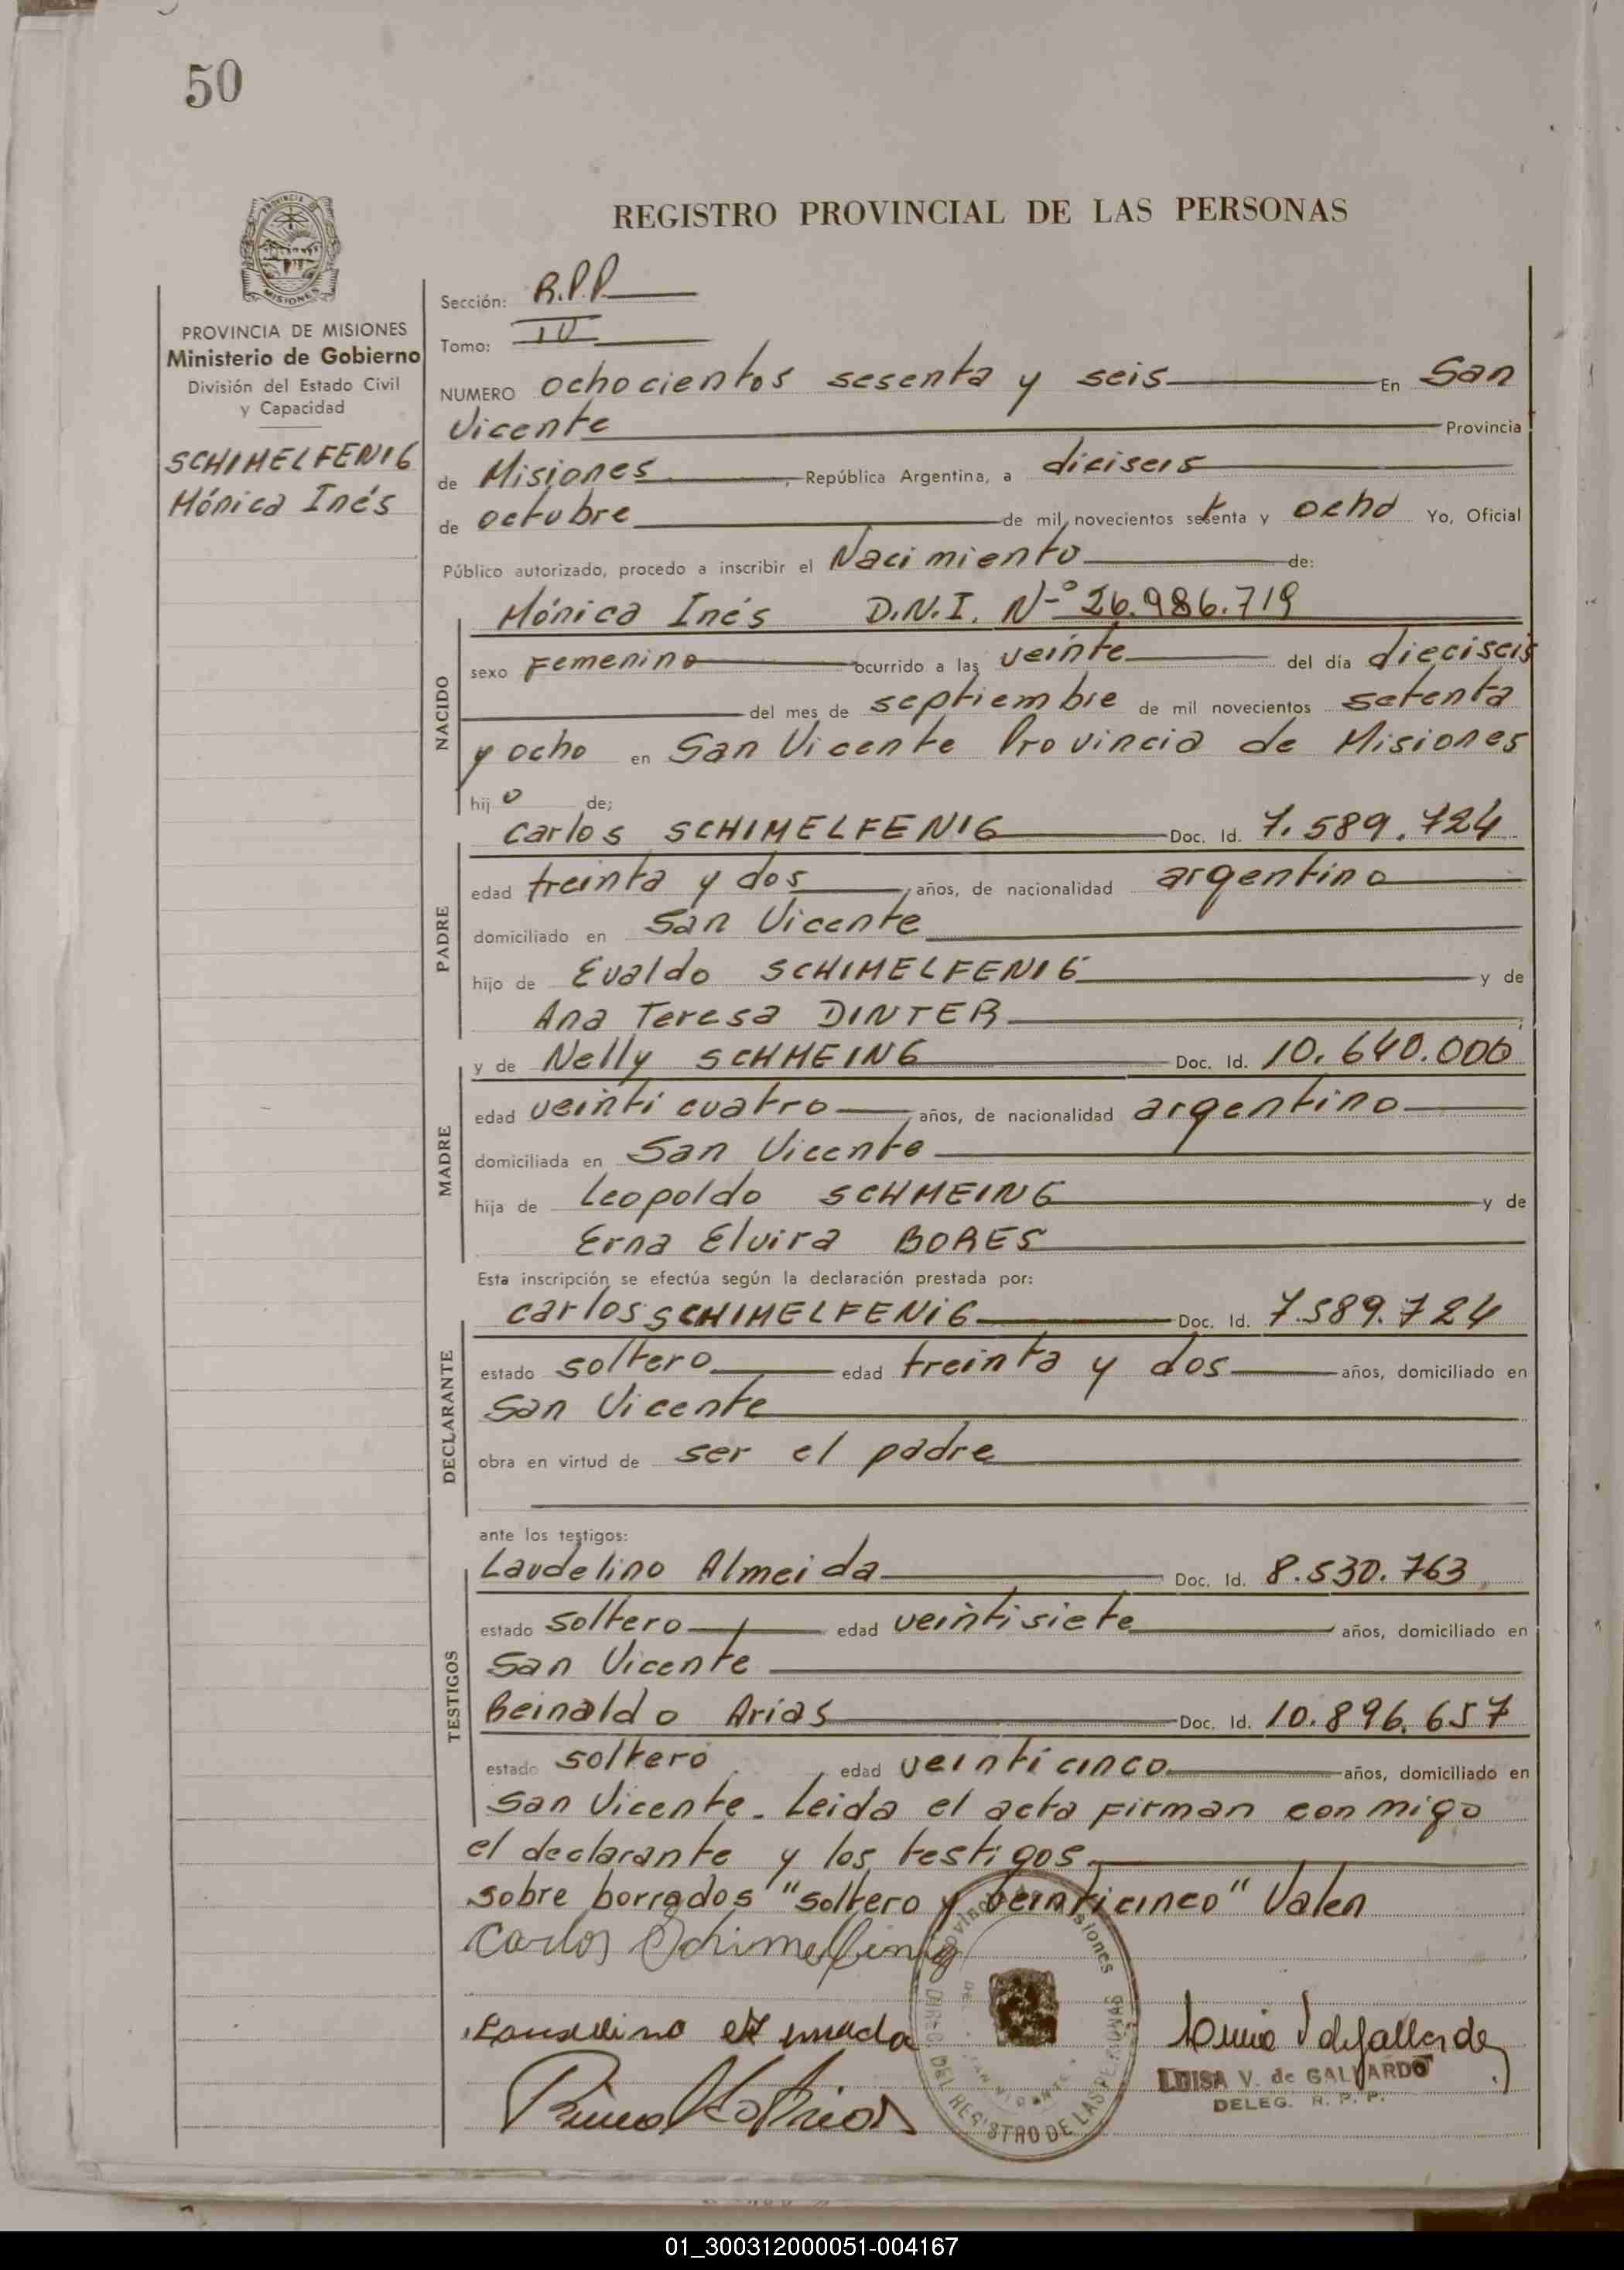 50
REGISTRO PROVINCIAL DE LAS PERSONAS
PROVINCIA DE MISIONES
Ministerio de Gobierno
División del Estado Civil
y Capacidad
SCHIMELFENIG
Mónica Inés
Sección: R.P.P.
Tomo: IV
NUMERO ochocientos sesenta y seis En San
Vicente Provincia
de Misiones, República Argentina, a dieiseis
de octubre de mil novecientos setenta y ocho Yo, Oficial
Público autorizado, procedo a inscribir el Nacimiento de:
NACIDO
Mónica Inés D.N.I. Nº 26.986.719
sexo Femenino ocurrido a las veinte del día dieciseis
del mes de septiembre de mil novecientos setenta
y ocho en San Vicente Provincia de Misiones
hijo de;
PADRE
Carlos SCHIMELFENIG Doc. Id. 7.589.724
edad treinta y dos, años, de nacionalidad argentino
domiciliado en San Vicente
hijo de Evaldo SCHIMELFENIG y de
Ana Teresa DINTER
MADRE
y de Nelly SCHMEING Doc. Id. 10.640.006
edad veinti cuatro, años, de nacionalidad argentino
domiciliada en San Vicente
hija de Leopoldo SCHMEING y de
Erna Elvira BORES
Esta inscripción se efectúa según la declaración prestada por:
DECLARANTE
Carlos SCHIMELFENIG Doc. Id. 7.589.724
estado soltero edad treinta y dos años, domiciliado en
San Vicente
obra en virtud de ser el padre
ante los testigos:
TESTIGOS
Laudelino Almeida Doc. Id. 8.530.763
estado soltero edad veintisiete años, domiciliado en
San Vicente
Reinaldo Arias Doc. Id. 10.896.657
estado soltero edad veinticinco años, domiciliado en
San Vicente. Leida el acta firman conmigo
el declarante y los testigos.
sobre borrados "soltero y veinticinco" Valen
Carlos Schimelfenig
LUISA V. de GALLARDO
DELEG. R. P. P.
DEL REGISTRO DE LAS PERSONAS
01_300312000051-004167